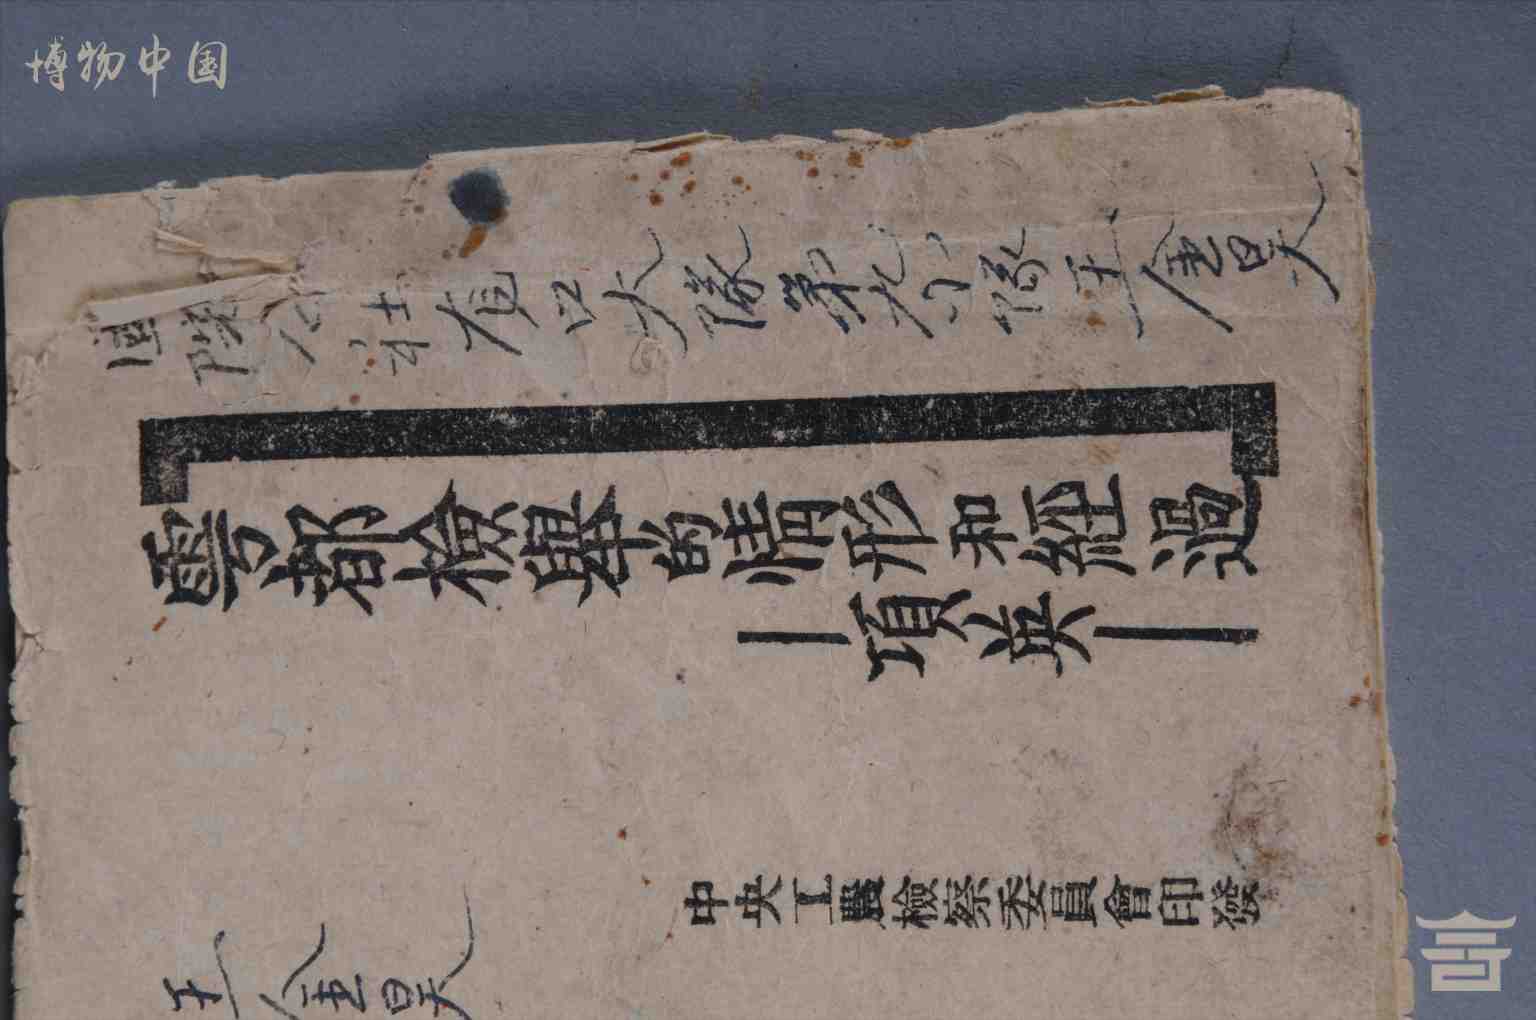 博物中国
公社口大隊第九小隊王金昊
雩都檢舉的情形和經過
—項英—
中央工農檢察委員會印發
王金昊